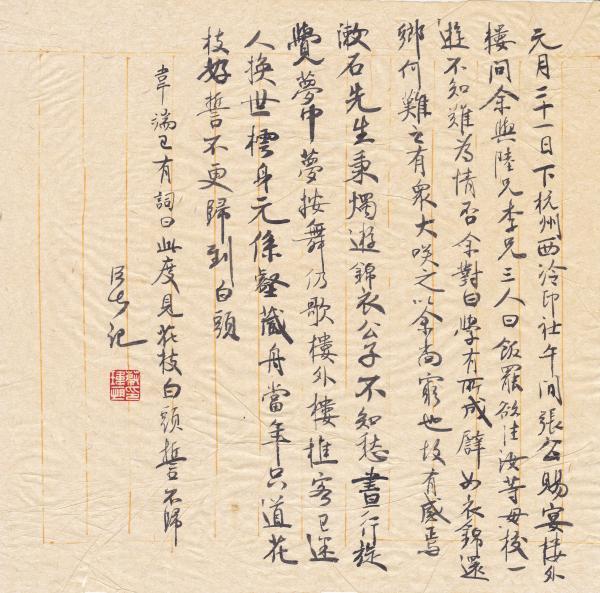 元月二十一日下杭州西泠印社午间張公賜宴樓外
樓问余與陸兄李兄三人曰飯罷欲往汝等母校一
遊不知難為情否余對曰學有所成譬如衣錦還
鄉何難之有眾大咲之以余尚窮也故有感焉
漱石先生秉燭遊錦衣公子不知愁晝行旋
覺夢中夢按舞仍歌樓外樓樵客已迷
人換世樗身元係壑藏舟當年只道花
枝好誓不更歸到白頭
韋端己有詞曰此度見花枝白頭誓不歸
記